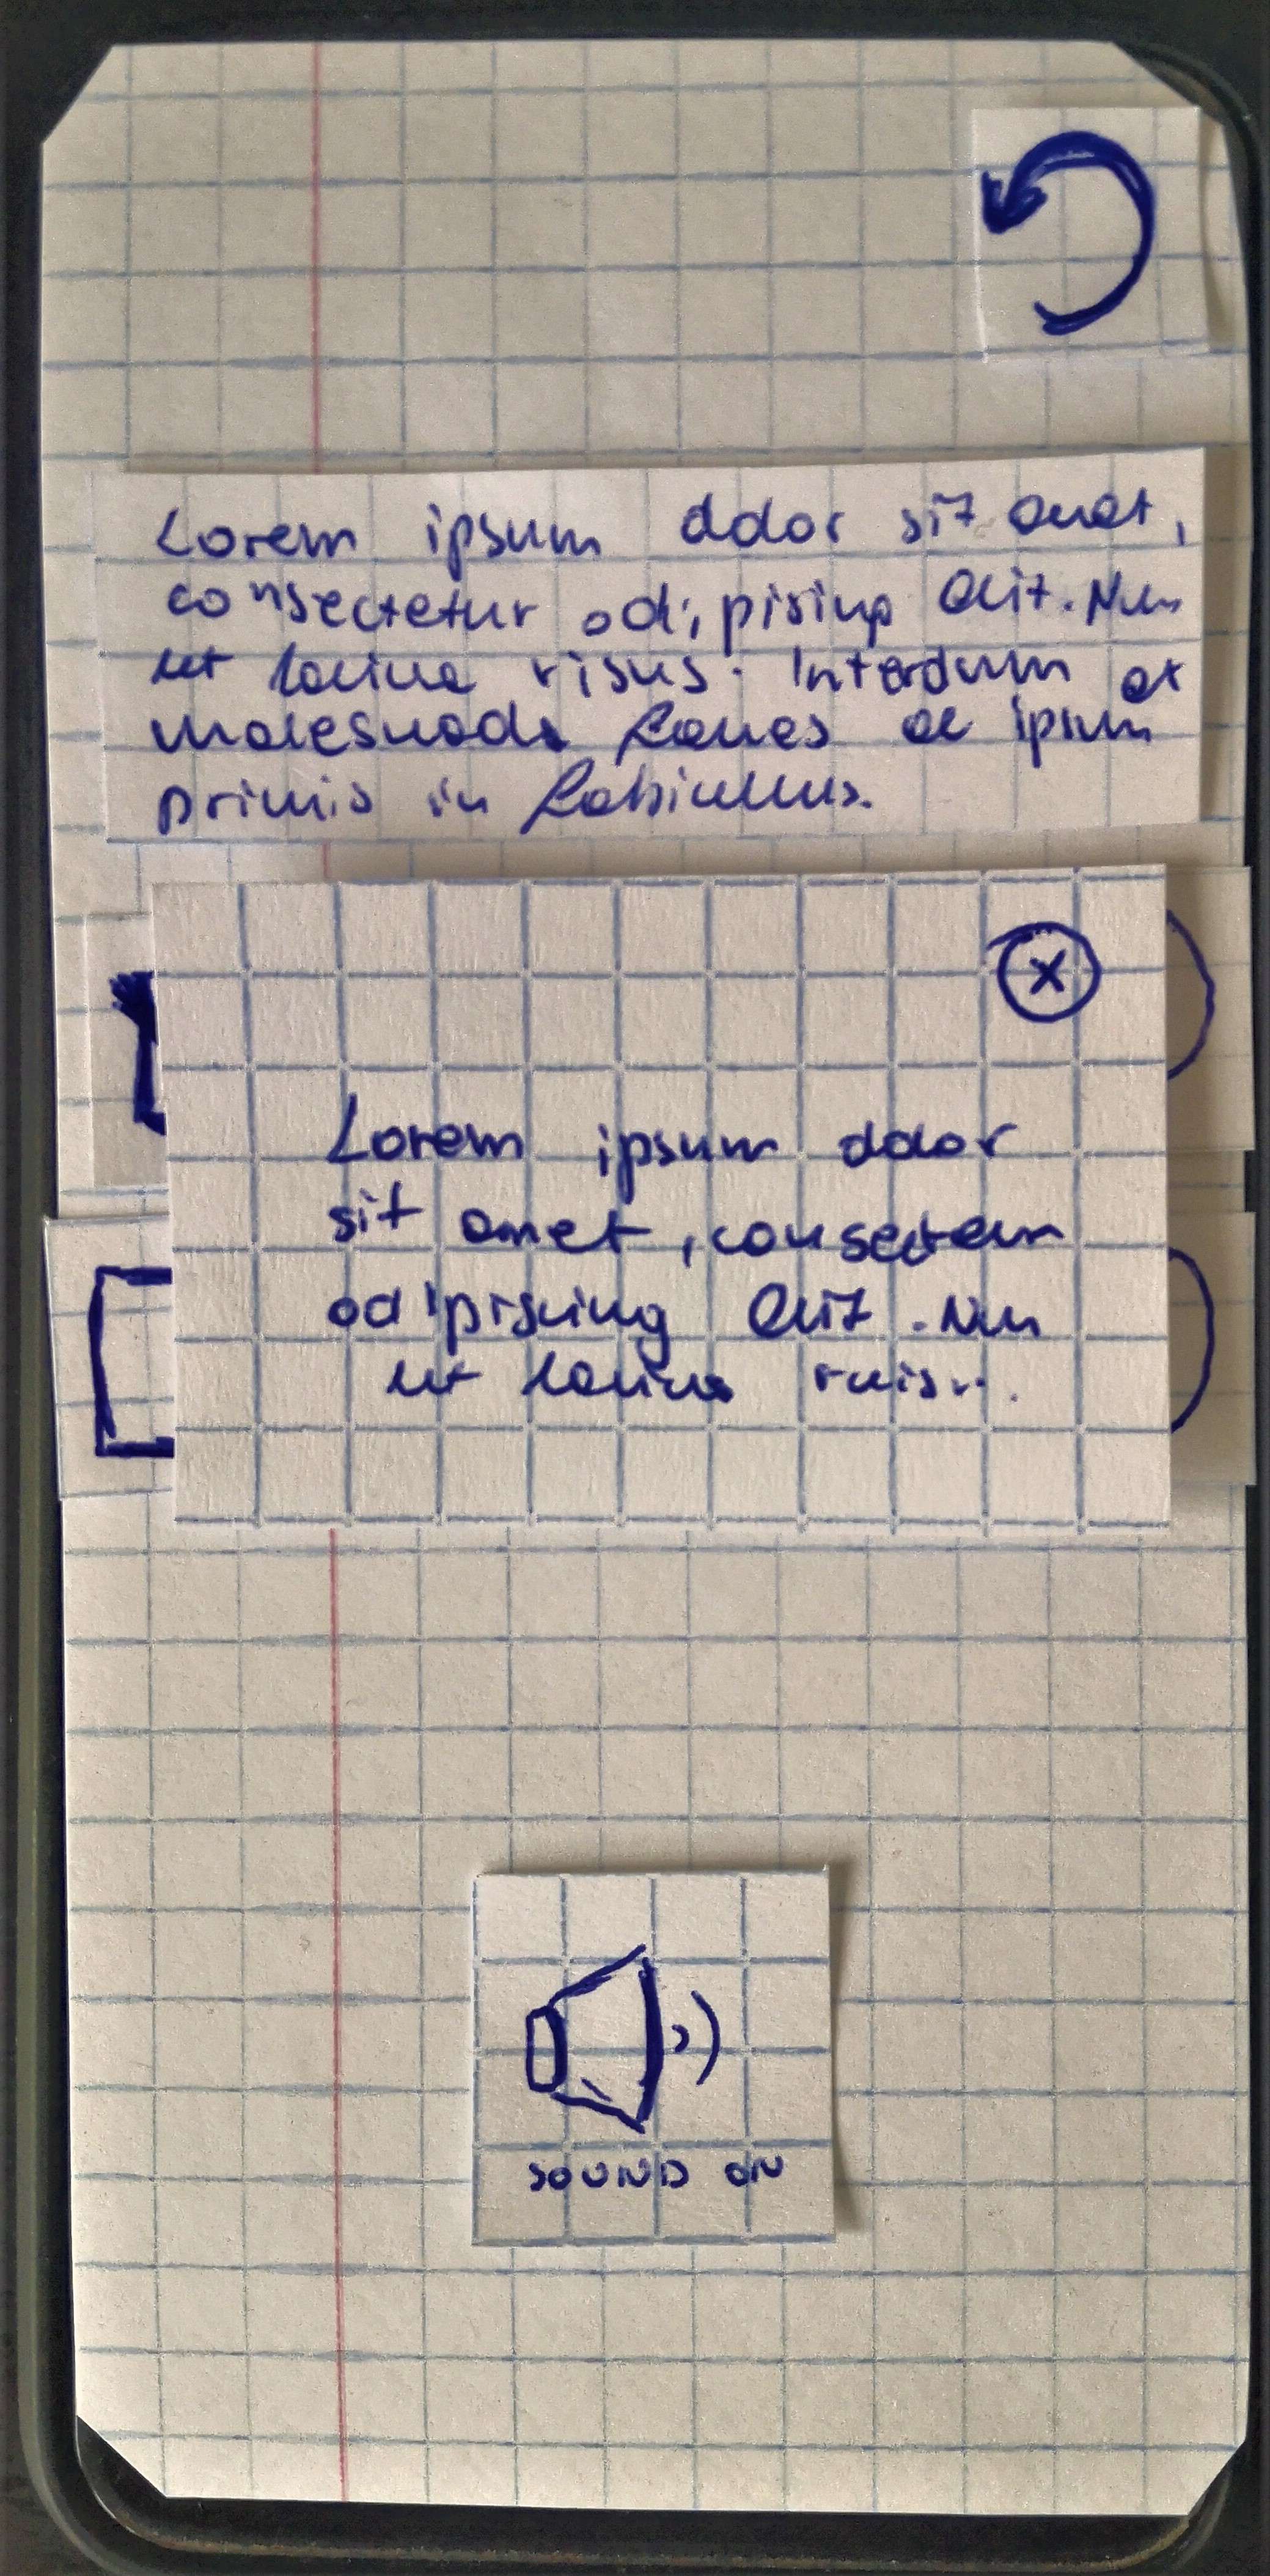 Lorem ipsum dolor sit amet,
consectetur adipising elit. Nun
ut lacina risus. Interdum et
malesuada fames ac ipsum
primis in
X
Lorem ipsum dolor
sit amet, consectetur
adipiscing elit. Nun
ut lacinia
SOUND ON